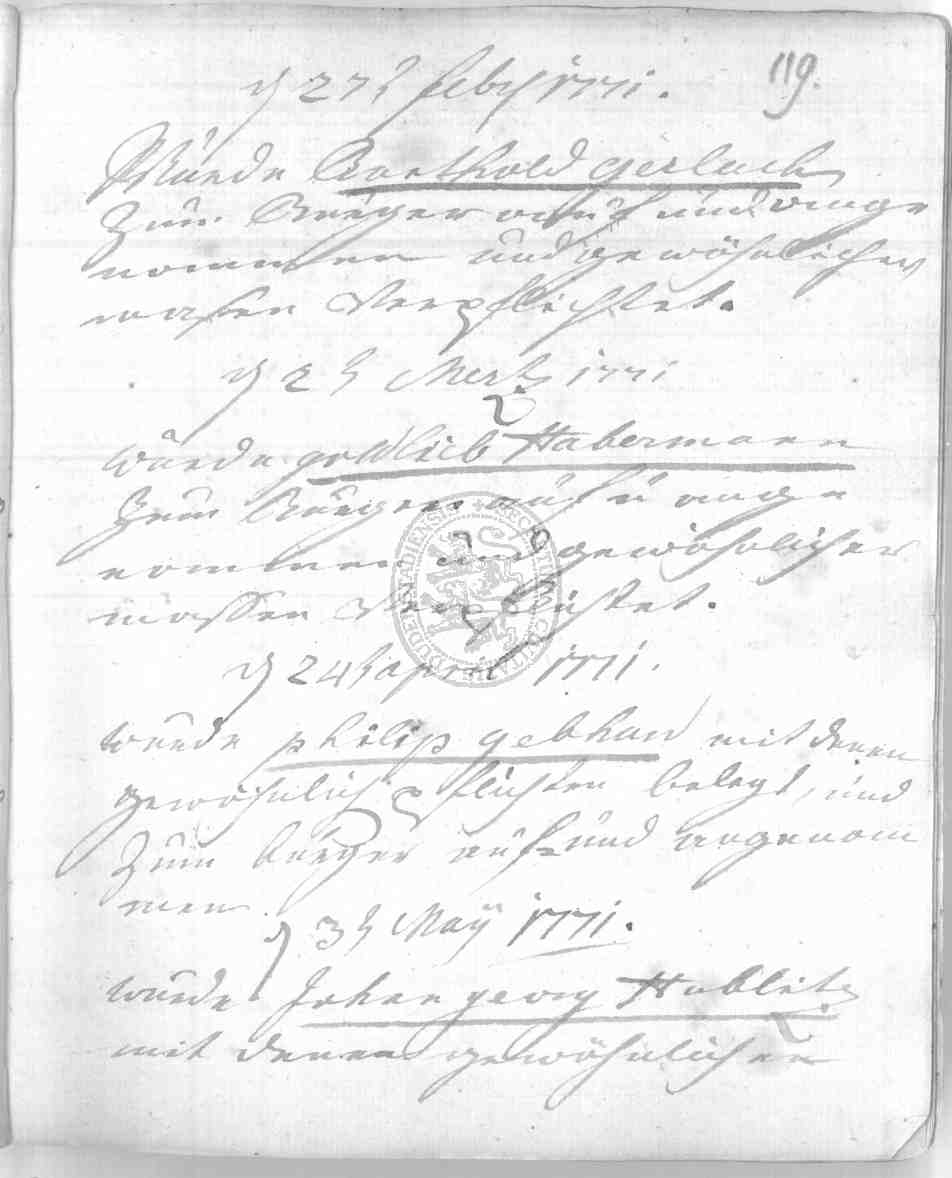 119.
d 27t feby 1771.
Wurde Barthold gerlach
zum Bürger auf und ange
nommen und gewöhnlicher
masen Verpflichtet.
d 2t Mertz 1771
wurde gottlieb Habermann
zum Bürger auf u ange
nommen und gewöhnlicher
massen Verpflichtet.
d 24t april 1771.
wurde philip gebhard mit denen
gewöhnlich pflichten belegt, und
zum bürger auf und angenom
men.
d 3t Maÿ 1771.
wurde Johan georg Hablitz
mit denen gewöhnlichen